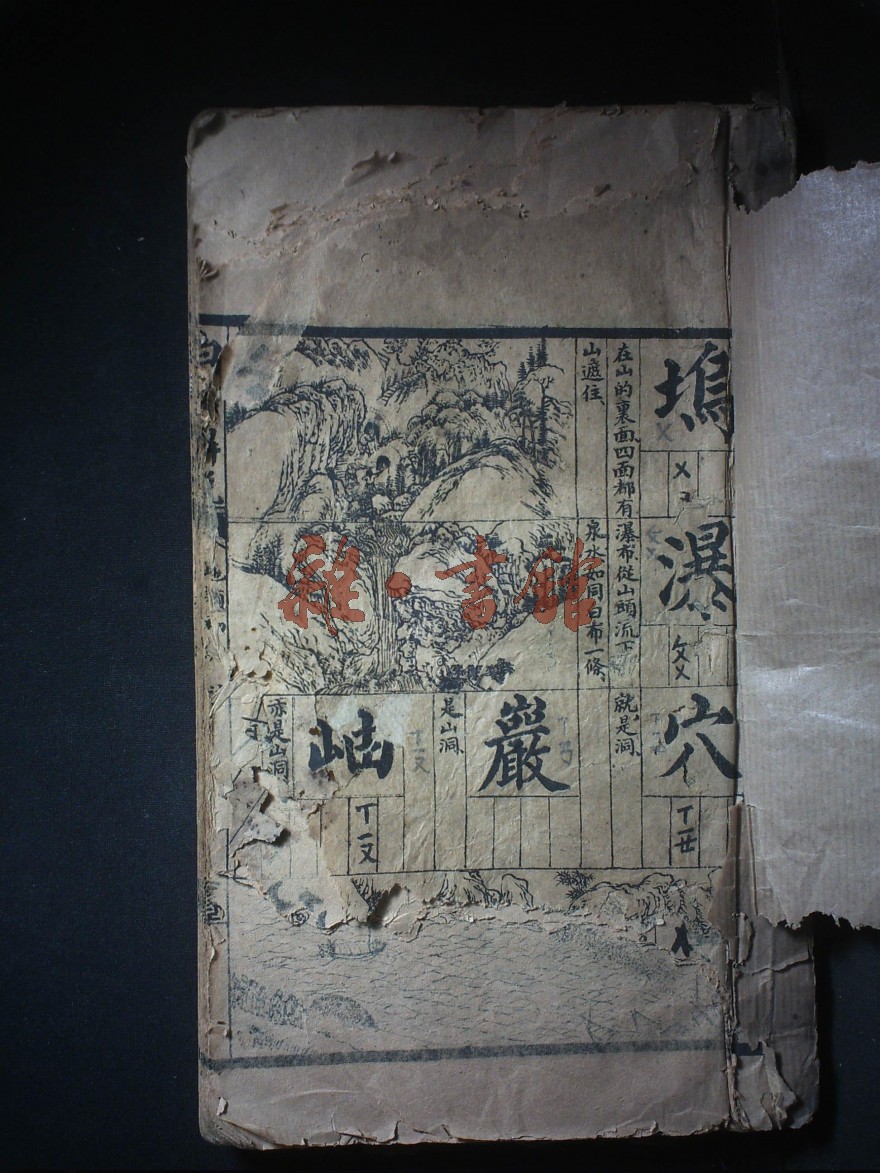 塢
ㄨ
在山的裏面四面都有
山遮住、
瀑
ㄆㄨ
瀑布從山頭流下
泉水如同白布一條、
穴
ㄒㄧㄝ
就是洞、
巖
是山洞、
岫
ㄒㄧㄡ
亦是山洞、
雜·書館